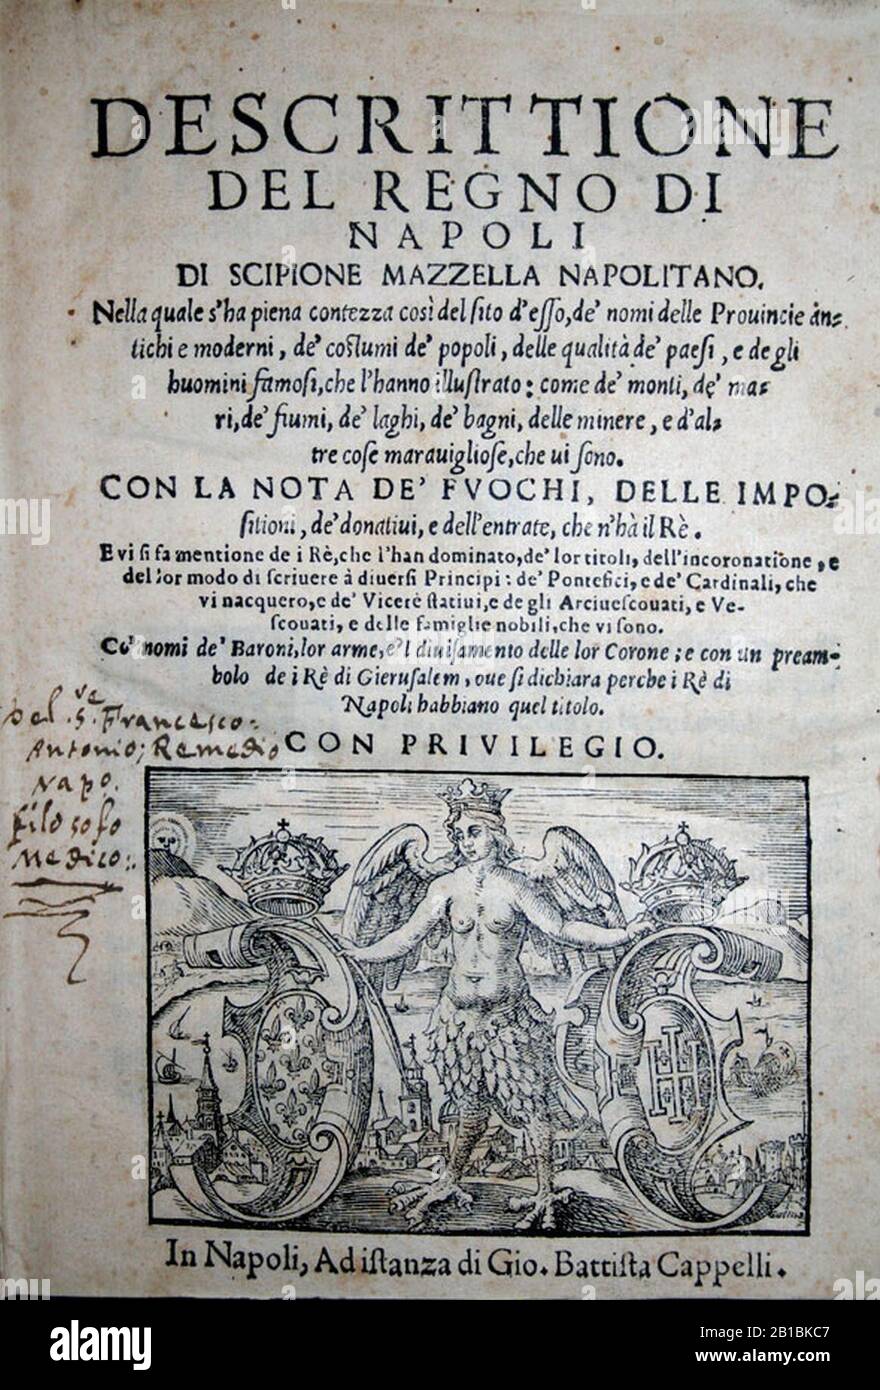 DESCRITTIONE
DEL REGNO DI
NAPOLI
DI SCIPIONE MAZZELLA NAPOLITANO.
Nella quale s'ha piena contezza così del sito d'esso, de' nomi delle Prouincie an-
tichi e moderni, de' costumi de' popoli, delle qualità de' paesi, e de gli
huomini famosi, che l'hanno illustrato: come de' monti, de' ma-
ri, de' fiumi, de' laghi, de' bagni, delle minere, e d'al-
tre cose marauigliose, che ui sono.
CON LA NOTA DE' FVOCHI, DELLE IMPO-
sitioni, de' donatiui, e dell'entrate, che n'hà il Rè.
E vi si fa mentione de i Rè, che l'han dominato, de' lor titoli, dell'incoronatione, e
del lor modo di scriuere à diuersi Principi: de' Pontefici, e de' Cardinali, che
vi nacquero, e de' Vicerè statiui, e de gli Arciuescouati, e Ve-
scouati, e delle famiglie nobili, che vi sono.
Co' nomi de' Baroni, lor arme, e'l diuisamento delle lor Corone; e con un pream-
bolo de i Rè di Gierusalem, oue si dichiara perche i Rè di
Napoli habbiano quel titolo.
Del .s.re Francesco:
Antonio; Remedio
Napo.
filosofo
Medico:.
CON PRIVILEGIO.
In Napoli, Ad istanza di Gio. Battista Cappelli.
alamy
Image ID: 2B1BKC7
www.alamy.com